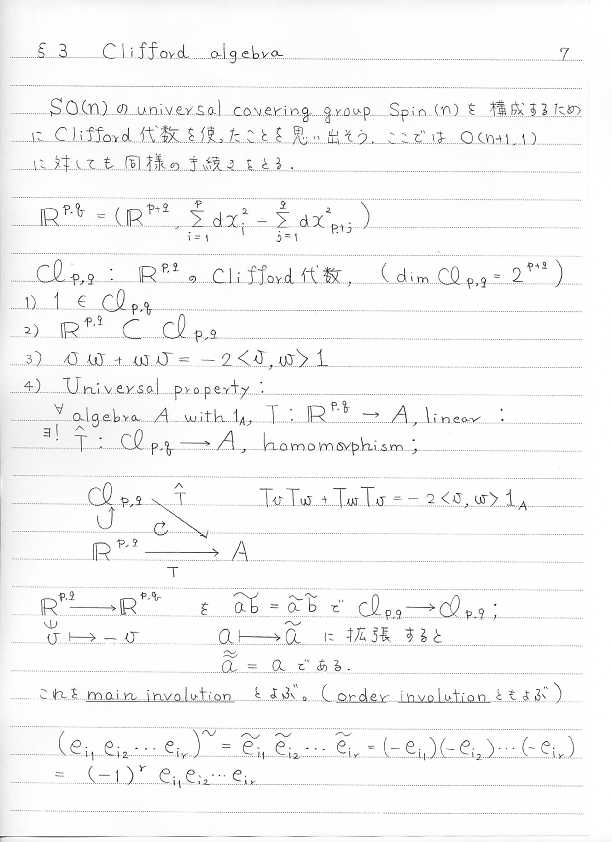 §3 Clifford algebra 7
SO(n) の universal covering group Spin(n) を 構成するため
に Clifford 代数を使ったことを思い出そう. ここでは O(n+1,1)
に対しても同様の手続きをとる.
ℝ^{p,q} = (ℝ^{p+q}, Σ_{i=1}^{p} dx_i^2 − Σ_{j=1}^{q} dx_{p+j}^2)
Cl_{p,q} : ℝ^{p,q} の Clifford 代数, (dim Cl_{p,q} = 2^{p+q})
1) 1 ∈ Cl_{p,q}
2) ℝ^{p,q} ⊂ Cl_{p,q}
3) v w + w v = −2<v,w>1
4) Universal property :
∀ algebra A with 1_A, T : ℝ^{p,q} → A, linear :
∃! T̂ : Cl_{p,q} → A, homomorphism ;
Cl_{p,q} T̂ TvTw + TwTv = −2<v,w>1_A
∪ C
ℝ^{p,q} → A
T
ℝ^{p,q} → ℝ^{p,q} を \widetilde{ab} = ã b̃ で Cl_{p,q} → Cl_{p,q} ;
v ↦ −v a ↦ ã に 拡張 すると
\tilde{\tilde{a}} = a である.
これを main involution とよぶ。(order involution ともよぶ)
(e_{i1} e_{i2} ⋯ e_{ir})^~ = ẽ_{i1} ẽ_{i2} ⋯ ẽ_{ir} = (−e_{i1})(−e_{i2}) ⋯ (−e_{ir})
= (−1)^r e_{i1} e_{i2} ⋯ e_{ir}